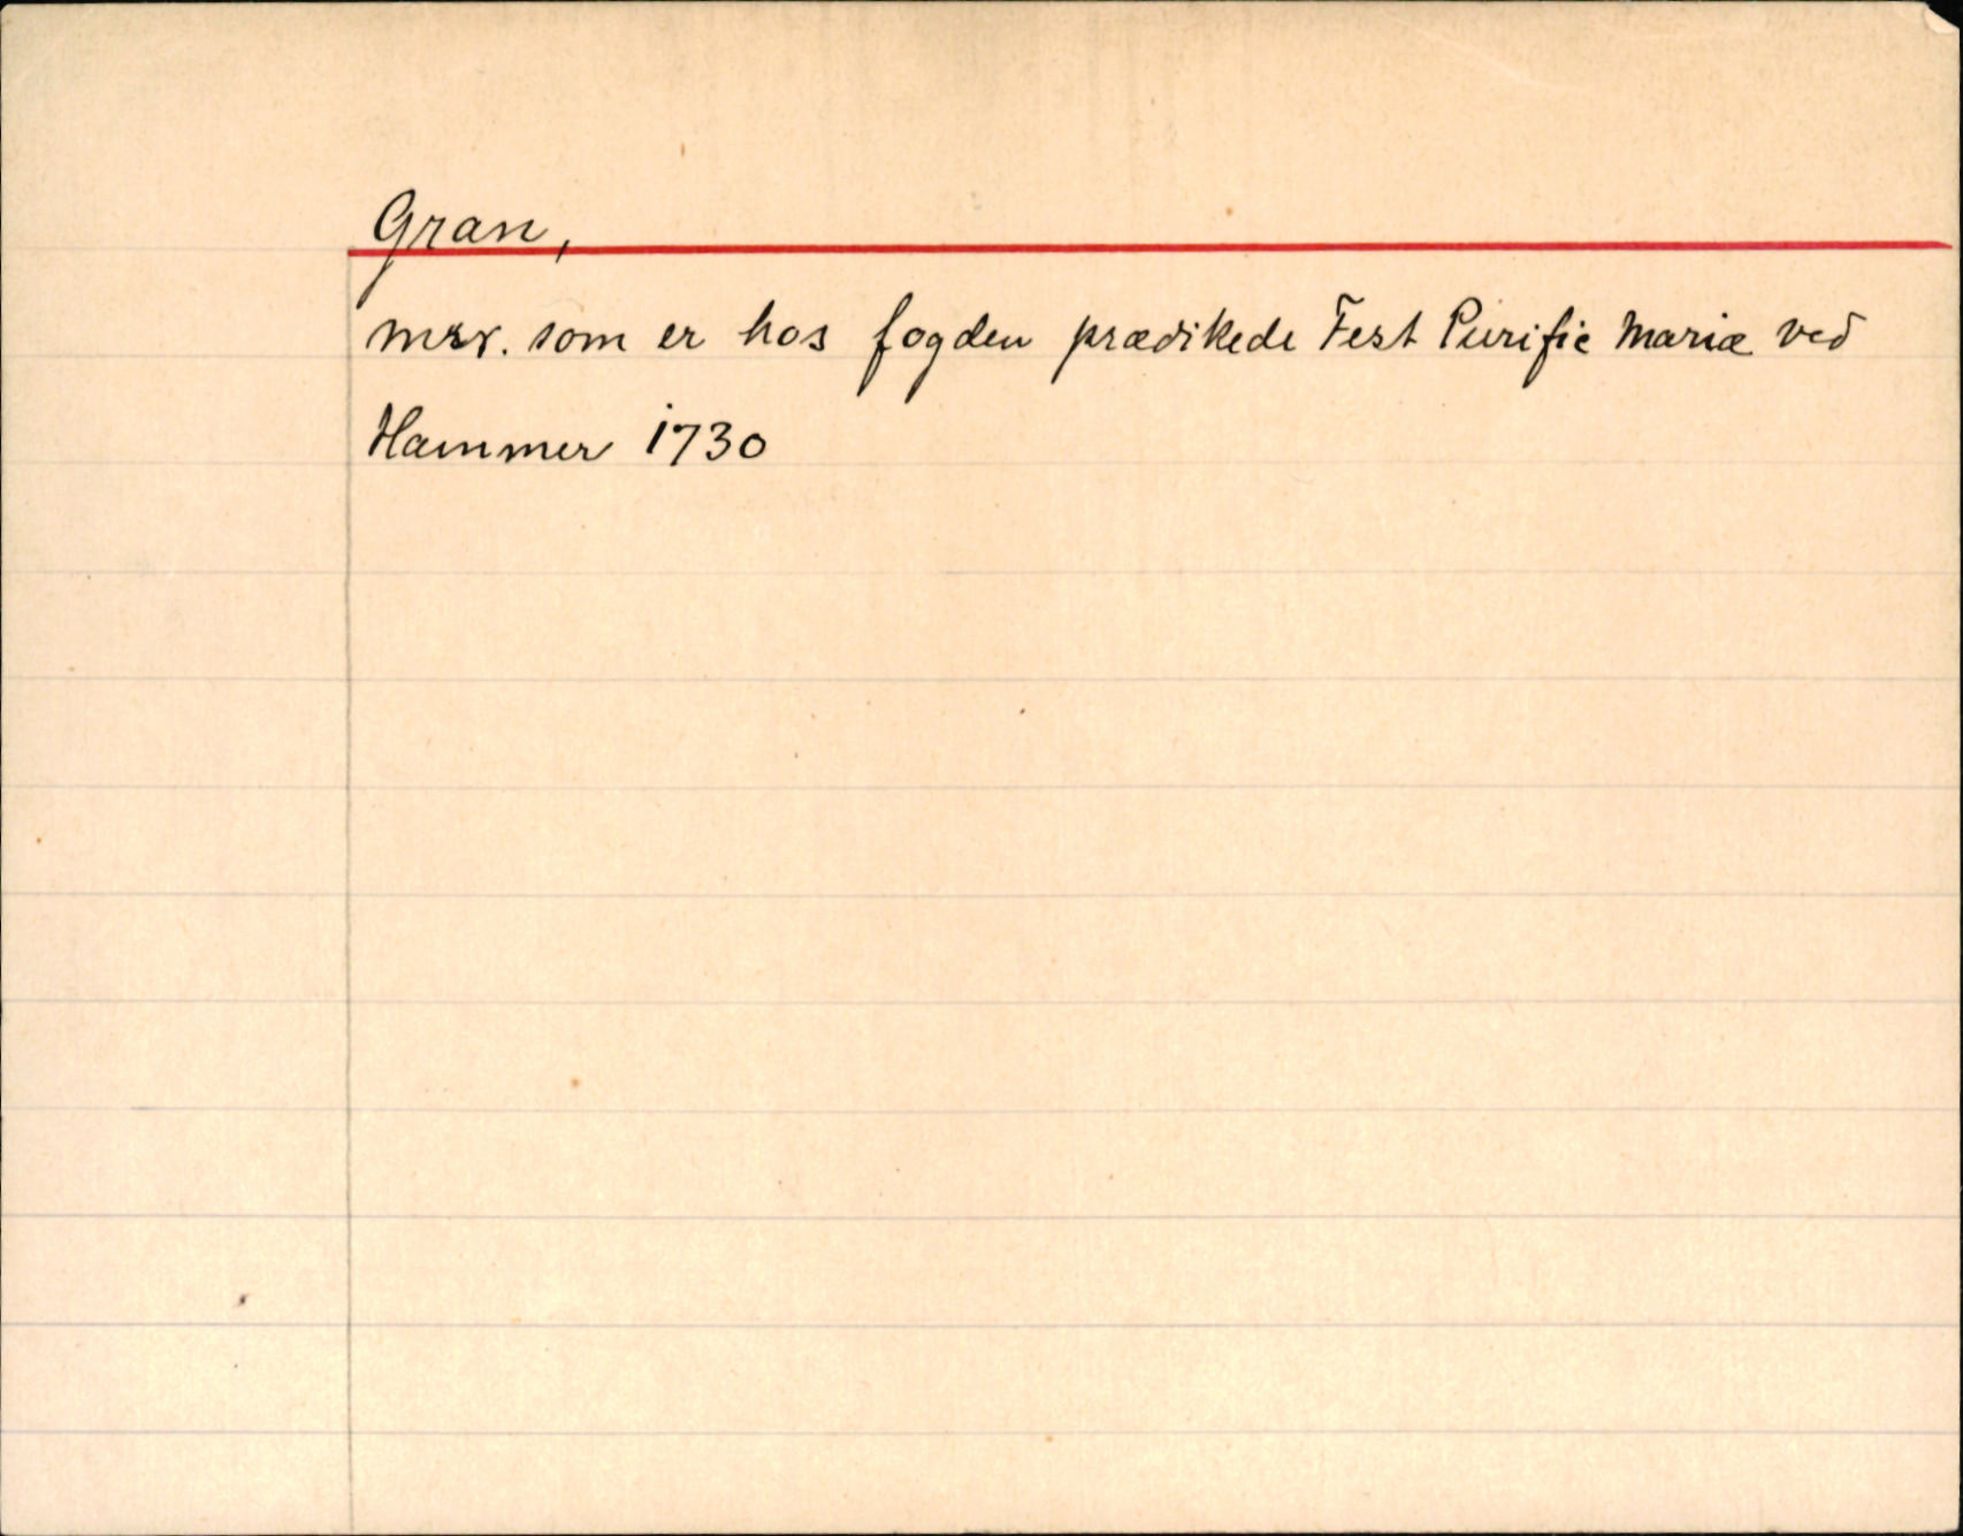 Gran,
msr. som er hos fogden prædikede Fest Purific Mariæ ved
Hammer 1730